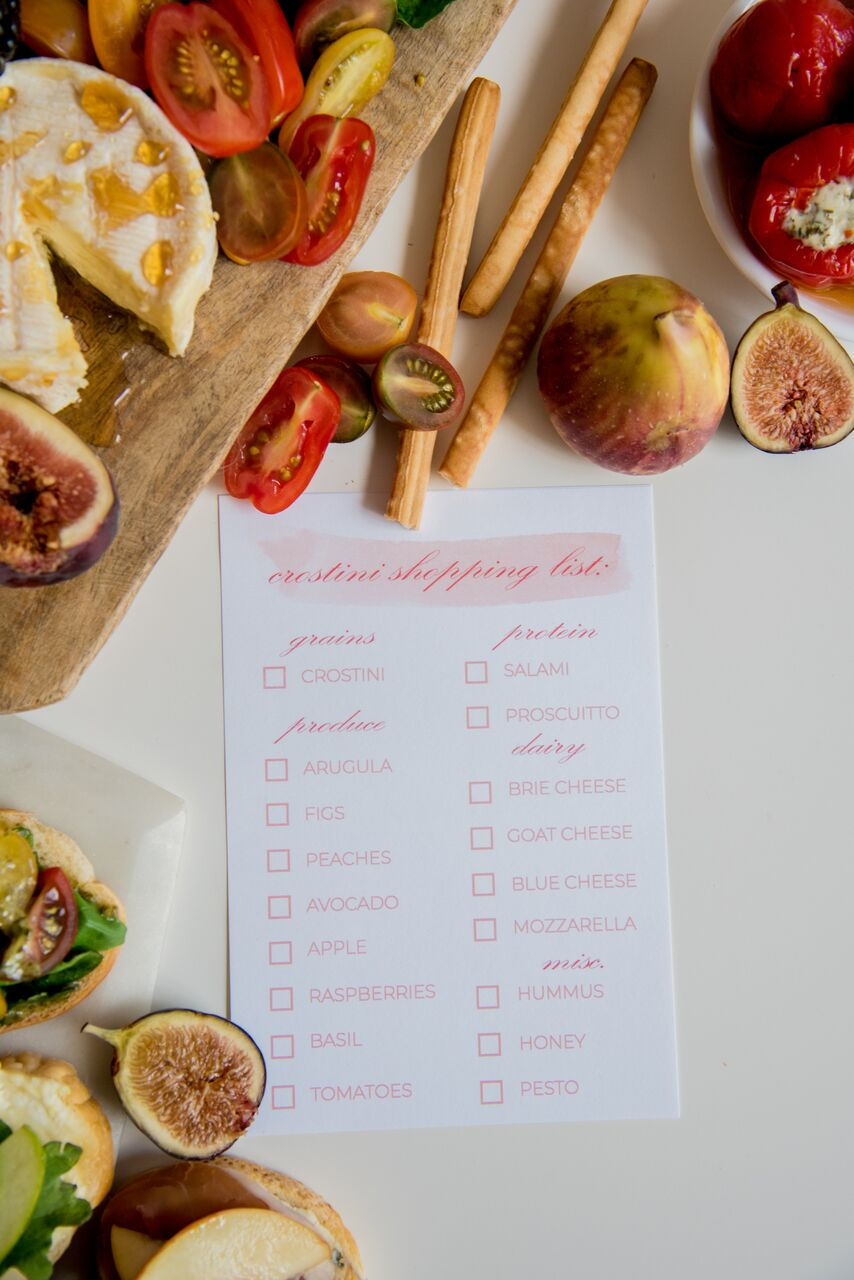 crostini shopping list:
grains
CROSTINI
produce
ARUGULA
FIGS
PEACHES
AVOCADO
APPLE
RASPBERRIES
BASIL
TOMATOES
protein
SALAMI
PROSCUITTO
dairy
BRIE CHEESE
GOAT CHEESE
BLUE CHEESE
MOZZARELLA
misc.
HUMMUS
HONEY
PESTO